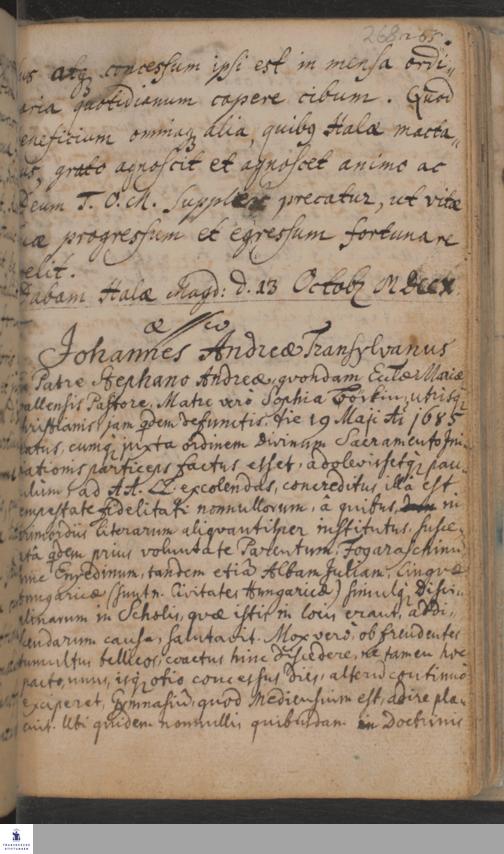 268 265.
us atq concessum ipsi est in mensa ordi„
aria quotidianum capere cibum. Quod
eneficium omniaq alia, quibq Halæ macta„
us, grato agnoscit et agnoscet animo ac
Deum T. O. M. precatur, ut vitæ
uæ progressum et egressum fortunare
elit.
abam Halæ Magd: d. 13 Octobr MDCCX.
Johannes Andreæ Transylvanus
Patre Stephano Andreæ, qvondam Mariæ
allensis Pastore, Matre vero Sophia utrisq
hristianis, jam qdem defunctis, die 19 Maji Ai 1685
atus, cumq; juxta ordinem divinum Sacramento Ini
ationis particeps factus esset, adolevissetq; pau
ulum, ad AA. LL. excolendas, concreditus illa est
empestate fidelitati nonnullorum, â quibus, in
rimordiis literarum aliqvantisper institutus, susce
tâ qdem prius voluntate Parentum, Fogaraschinū
inc Enyedinum, tandem etiā Albam Juliam, Lingvæ
Hungaricæ (sunt n. Civitates Hungaricæ) simulq; Disci„
plinarum in Scholis, qvæ istis in locis erant, addi„
scendarum causa, salutavit. Mox verò, ob frendentes
tumultus bellicos, coactus hinc discedere, ne tamen hoc
pacto, unus, isq; otio concessus dies, alterū continuò
exciperet, Gymnasiū, quod Mediensium est, adire pla„
cuit. Ubi quidem nonnullis quibusdam in Doctrinis
TRANCKESCHE
STIFTUNGEN